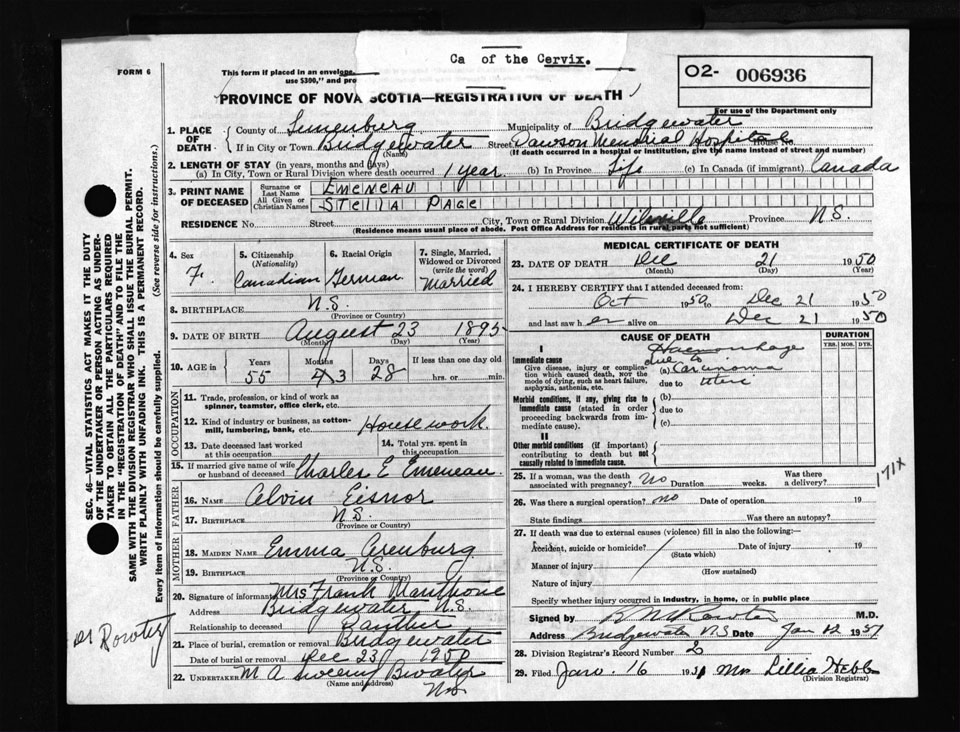 Ca of the Cervix.
FORM 6
This form if placed in an envelope
use $300," and pro
O2- 006936
For use of the Department only
PROVINCE OF NOVA SCOTIA—REGISTRATION OF DEATH
1. PLACE OF DEATH
County of Lunenburg Municipality of Bridgewater
If in City or Town Bridgewater Street Dawson Memorial Hospital House No.
(Name) (If death occurred in a hospital or institution, give the name instead of street and number)
2. LENGTH OF STAY (in years, months and days)
(a) In City, Town or Rural Division where death occurred 1 year (b) In Province Life (c) In Canada (if immigrant) Canada
3. PRINT NAME OF DECEASED
Surname or Last Name EMENEAU
All Given or Christian Names STELLA PAGE
RESIDENCE No. Street City, Town or Rural Division Province N.S.
(Residence means usual place of abode. Post Office Address for residents in rural parts not sufficient)
4. Sex F.
5. Citizenship (Nationality) Canadian
6. Racial Origin German
7. Single, Married, Widowed or Divorced (write the word) Married
8. BIRTHPLACE N.S.
(Province or Country)
9. DATE OF BIRTH August 23 1895
(Month) (Day) (Year)
10. AGE in Years Months Days If less than one day old
55 3 28 hrs. or min.
OCCUPATION
11. Trade, profession, or kind of work as spinner, teamster, office clerk, etc.
12. Kind of industry or business, as cotton-mill, lumbering, bank, etc. Housework
13. Date deceased last worked at this occupation
14. Total yrs. spent in this occupation
15. If married give name of wife or husband of deceased Charles E Emeneau
FATHER
16. NAME Alvin Eisnor
17. BIRTHPLACE N.S.
(Province or Country)
MOTHER
18. MAIDEN NAME Emma Arenburg
19. BIRTHPLACE N.S.
(Province or Country)
20. Signature of informant Mrs Frank Manthorne
Address Bridgewater N.S.
Relationship to deceased
21. Place of burial, cremation or removal Bridgewater
Date of burial or removal Dec 23 1950
22. UNDERTAKER M A Sweeny Bwater
(Name and address) N.S.
MEDICAL CERTIFICATE OF DEATH
23. DATE OF DEATH Dec 21 1950
(Month) (Day)
24. I HEREBY CERTIFY that I attended deceased from:
Oct 1950 to Dec 21 1950
and last saw h er alive on Dec 21 1950
CAUSE OF DEATH
DURATION
YRS. MOS. DYS.
I
Immediate cause
Give disease, injury or complication which caused death, not the mode of dying, such as heart failure, asphyxia, asthenia, etc.
Haemorrhage
due to
(a) Carcinoma
due to uteri
Morbid conditions, if any, giving rise to immediate cause (stated in order proceeding backwards from immediate cause).
(b)
due to
(c)
II
Other morbid conditions (if important) contributing to death but not causally related to immediate cause.
25. If a woman, was the death associated with pregnancy? no Duration weeks. Was there a delivery?
171x
26. Was there a surgical operation? no Date of operation 19
State findings Was there an autopsy?
27. If death was due to external causes (violence) fill in also the following:
Accident, suicide or homicide? Date of injury 19
(State which)
Manner of injury
(How sustained)
Nature of injury
Specify whether injury occurred in industry, in home, or in public place
Signed by M.D.
Address Bridgewater N.S. Date Jan 12 1951
28. Division Registrar's Record Number 2
29. Filed Jan. 16 1951 Mrs Lillia Hebb
(Division Registrar)
SEC. 46—VITAL STATISTICS ACT MAKES IT THE DUTY
OF THE UNDERTAKER OR PERSON ACTING AS UNDER-
TAKER TO OBTAIN ALL THE PARTICULARS REQUIRED
IN THE "REGISTRATION OF DEATH" AND TO FILE THE
SAME WITH THE DIVISION REGISTRAR WHO SHALL ISSUE THE BURIAL PERMIT.
WRITE PLAINLY WITH UNFADING INK. THIS IS A PERMANENT RECORD.
Every item of information should be carefully supplied. (See reverse side for instructions.)